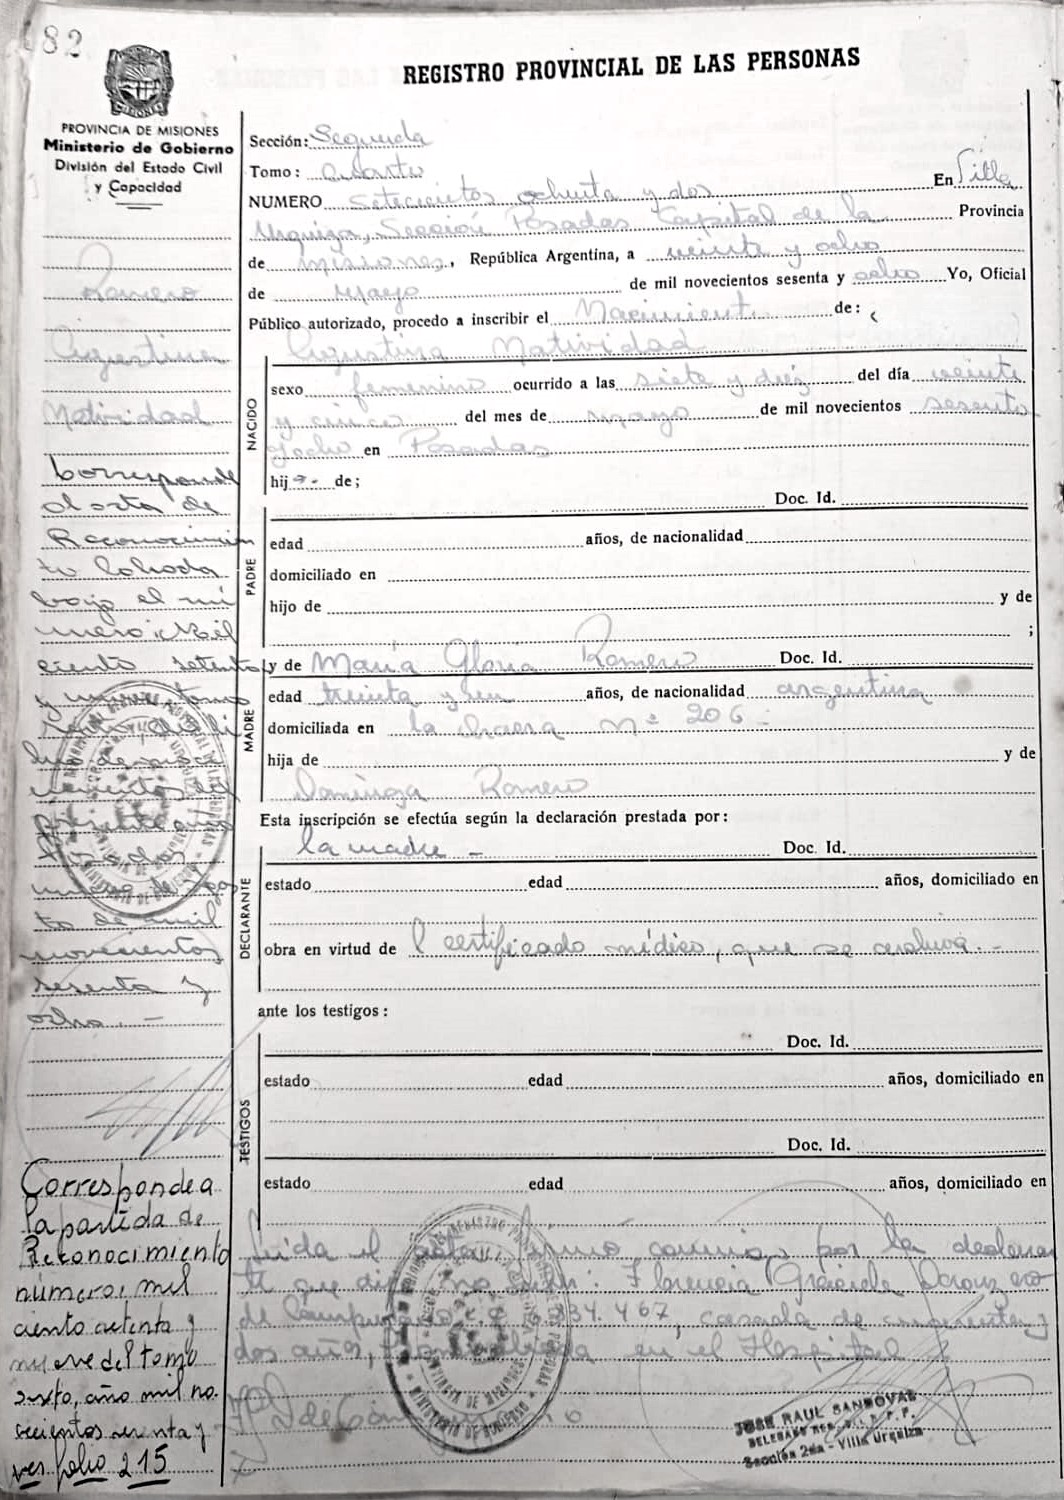 82
PROVINCIA DE MISIONES
Ministerio de Gobierno
División del Estado Civil
y Capacidad
REGISTRO PROVINCIAL DE LAS PERSONAS
Sección: Segunda
Tomo: Cuarto
NUMERO setecientos ochenta y dos En Villa
Urquiza, Sección Posadas Capital de la Provincia
de Misiones, República Argentina, a veinte y ocho
de Mayo de mil novecientos sesenta y ocho Yo, Oficial
Público autorizado, procedo a inscribir el Nacimiento de:
Agustina Natividad
NACIDO
sexo femenino ocurrido a las siete y diez del día veinte
y cinco del mes de mayo de mil novecientos sesenta
y ocho en Posadas
hij de;
Doc. Id.
PADRE
edad años, de nacionalidad
domiciliado en
hijo de y de
;
y de María Gloria Romero Doc. Id.
MADRE
edad treinta y años, de nacionalidad argentina
domiciliada en la chacra Nº 206
hija de y de
Dominga Romero
Esta inscripción se efectúa según la declaración prestada por:
la madre - Doc. Id.
DECLARANTE
estado edad años, domiciliado en
obra en virtud de l certificado médico, que se archiva. -
ante los testigos:
Doc. Id.
TESTIGOS
estado edad años, domiciliado en
Doc. Id.
estado edad años, domiciliado en
Leída el acta, firmo conmigo por la declaran
te que dijo no : Florencia Graciela
de 334.467, casada de cincuenta y
dos años, en el Hospital
JOSE RAUL SANDOVAL
DELEGADO REG.
Sección 2da - Villa Urquiza
Romero
Agustina
Natividad
Corresponde
al acta de
Reconocimien
to labrada
bajo el nú
mero: Mil
ciento setenta
y nueve tomo
presente
to de mil
novecientos
sesenta y
ocho. -
Corresponde a
la partida de
Reconocimiento
número: mil
ciento setenta y
nueve del tomo
sexto, año mil no.
vecientos sesenta y
ver folio 215